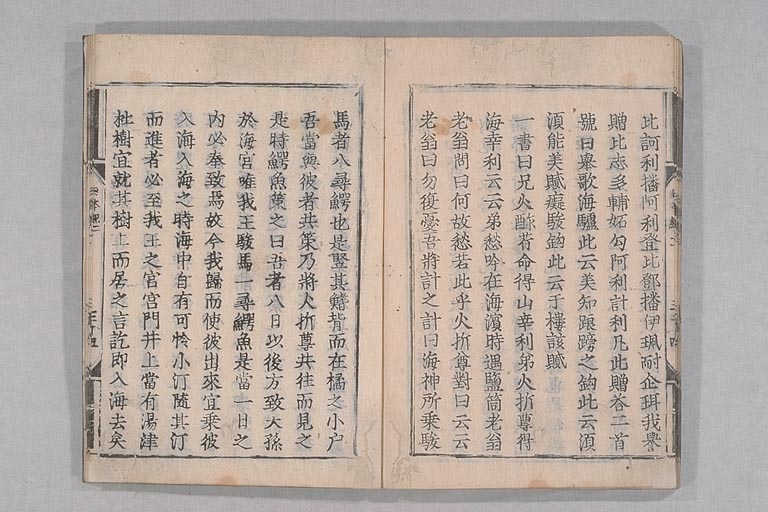 比訶利播阿利登比鄧播伊珮耐企珥我譽
贈比志多輔妬勾阿利計利凡此贈荅二首
號曰舉歌海驢此云美知踉䠙之鈎此云湏
湏能美膩癡騃鈎此云于樓該膩
一書曰兄火酢芹命得山幸利弟火折尊得
海幸利云云弟愁吟在海濱時遇鹽筒老翁
老翁問曰何故愁若此乎火折尊對曰云云
老翁曰勿復憂吾將計之計曰海神所乗駿
馬者八尋鰐也是竪其鰭背而在橘之小戸
吾當與彼者共策乃將火折尊共往而見之
是時鰐魚策之曰吾者八日以後方致天孫
於海宮唯我王駿馬一尋鰐魚是當一日之
内必奉致焉故今我歸而使彼出來宜乗彼
入海入海之時海中自有可怜小汀隨其汀
而進者必至我王之宮宮門井上當有湯津
杜樹宜就其樹上而居之言訖即入海去矣